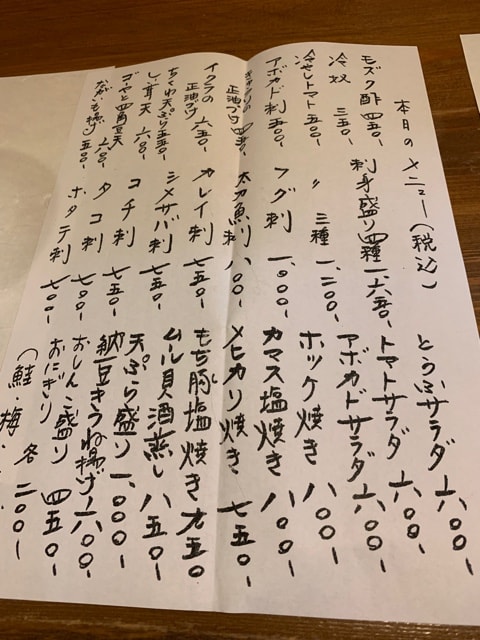 本日のメニュー(税込)
モズク酢 四五〇-
冷奴 三五〇-
冷やしトマト 五〇〇-
アボカド刺 五〇〇-
正油づけ 四五〇-
イクラの正油づけ 六五〇-
ちくわ天ぷら 五五〇-
し天 六〇〇-
ゴーヤと四角豆天 六〇〇-
ながいも揚げ 五〇〇-
刺身盛り四種 一、六五〇-
〃 三種 一、二〇〇-
フグ刺 一、〇〇〇-
太刀魚刺 八〇〇-
カレイ刺 七五〇-
シメサバ刺 七五〇-
コチ刺 七五〇-
タコ刺 七〇〇-
ホタテ刺 七〇〇-
とうふサラダ 六〇〇-
トマトサラダ 六〇〇-
アボカドサラダ 六〇〇-
ホッケ焼き 八〇〇-
カマス塩焼き 八〇〇-
メヒカリ焼き 七五〇-
もち豚塩焼き 九五〇
ムール貝酒蒸し 八五〇-
天ぷら盛り 一、〇〇〇-
納豆きつね揚げ 六〇〇-
おしんこ盛り 四五〇-
おにぎり 各二〇〇-
(鮭・梅・